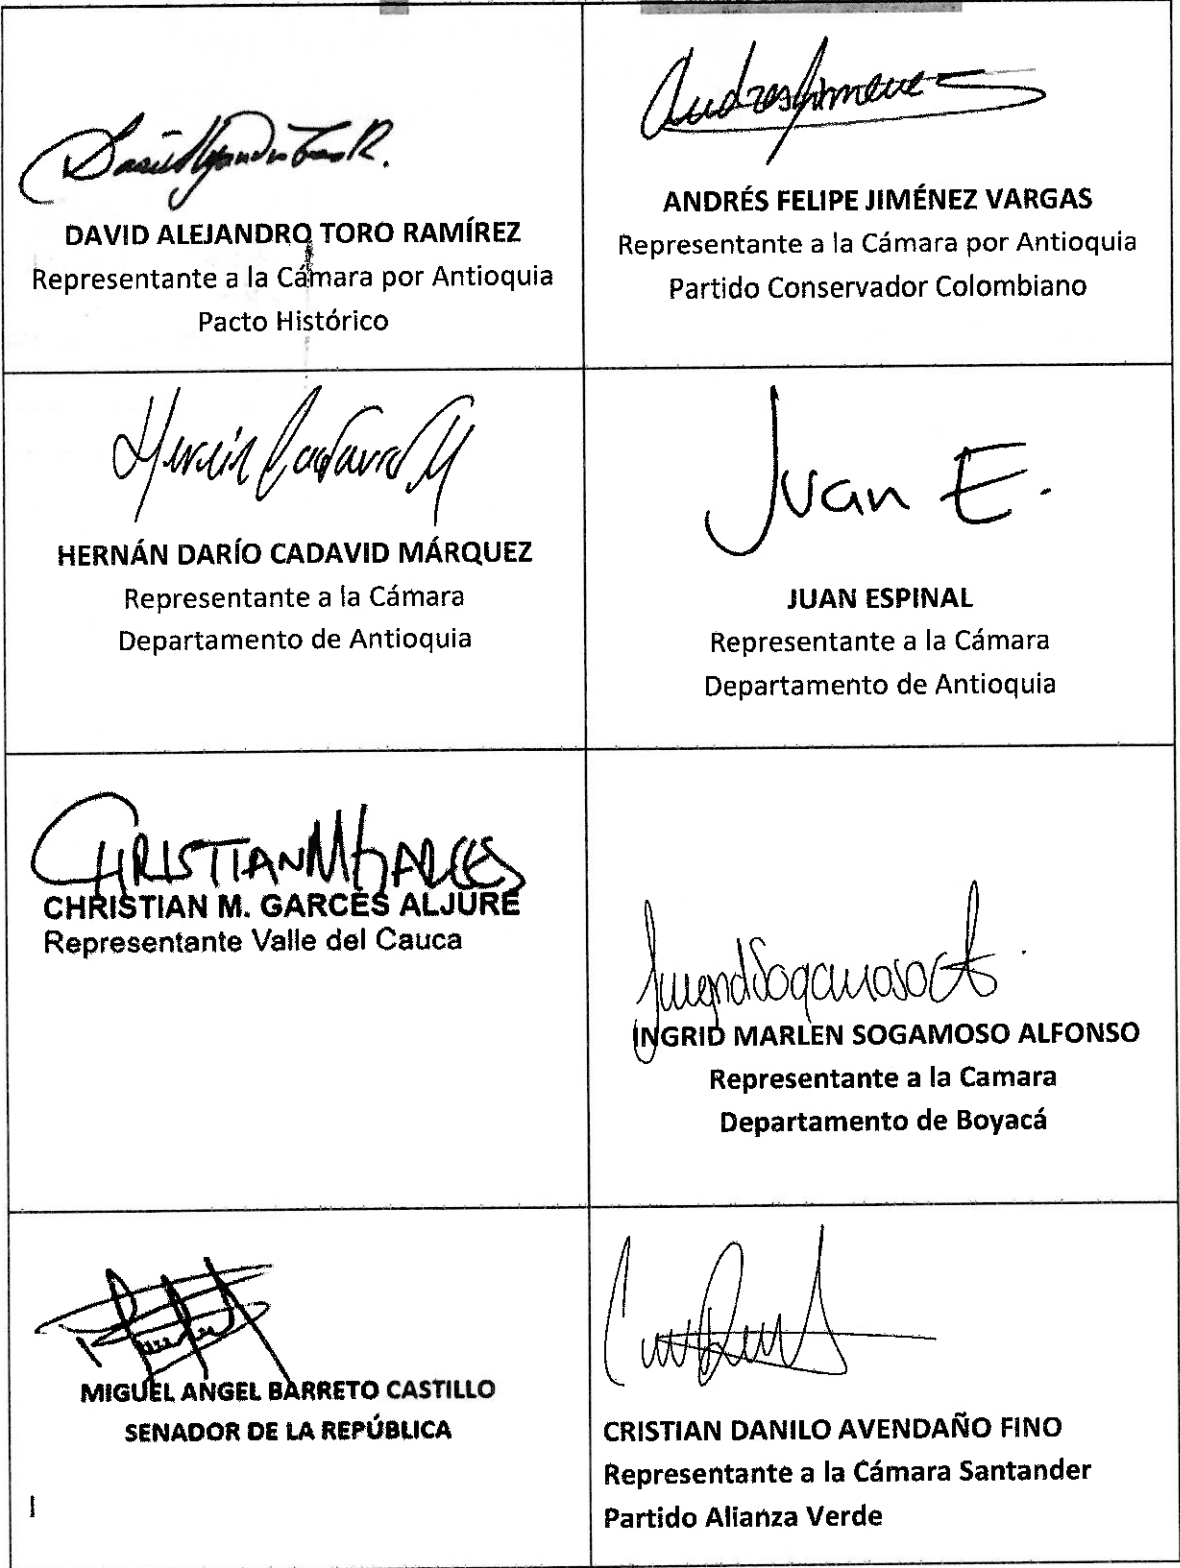 David Alejandro Toro R.
DAVID ALEJANDRO TORO RAMÍREZ
Representante a la Cámara por Antioquia
Pacto Histórico
Andres Jimenez
ANDRÉS FELIPE JIMÉNEZ VARGAS
Representante a la Cámara por Antioquia
Partido Conservador Colombiano
Hernán Cadavid M
HERNÁN DARÍO CADAVID MÁRQUEZ
Representante a la Cámara
Departamento de Antioquia
Juan E.
JUAN ESPINAL
Representante a la Cámara
Departamento de Antioquia
CHRISTIAN M GARCES
CHRISTIAN M. GARCES ALJURE
Representante Valle del Cauca
Ingrid Sogamoso A
INGRID MARLEN SOGAMOSO ALFONSO
Representante a la Camara
Departamento de Boyacá
MIGUEL ANGEL BARRETO CASTILLO
SENADOR DE LA REPÚBLICA
CRISTIAN DANILO AVENDAÑO FINO
Representante a la Cámara Santander
Partido Alianza Verde